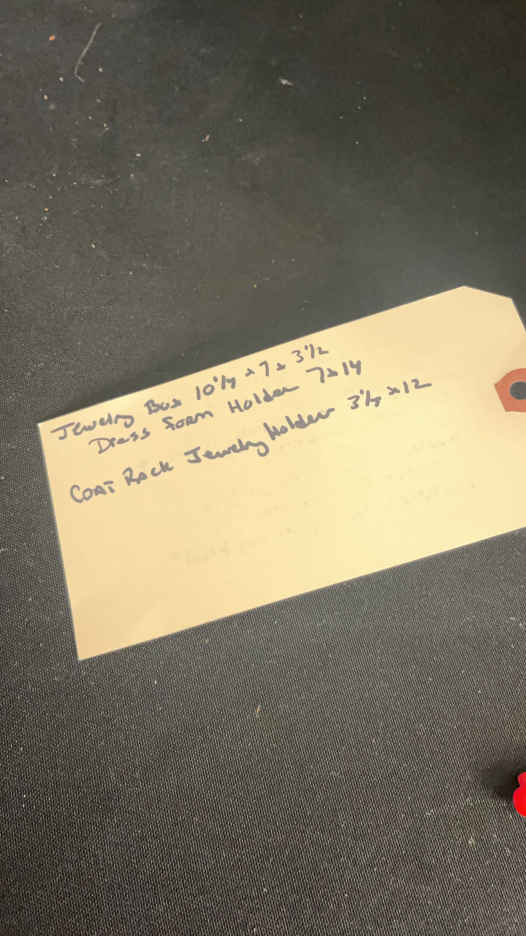 Jewelry Box 10 1/4 x 7 x 3 1/2
Dress Form Holder 7x14
COAT RACK Jewelry Holder 3 1/4 x 12